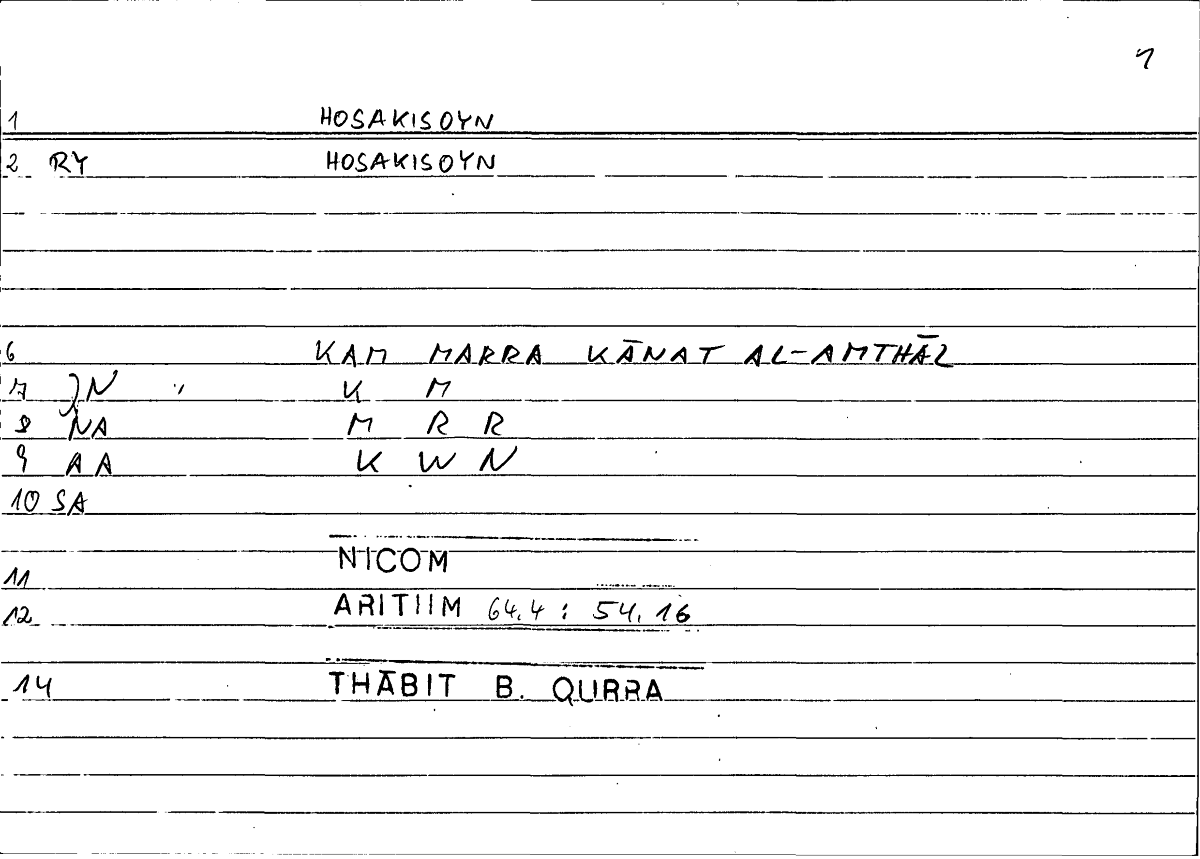 1
1 HOSAKISOYN
2 RY HOSAKISOYN
6 KAM MARRA KĀNAT AL-AMTHĀL
7 JN " K M
8 NA M R R
9 AA K W N
10 SA
NICOM
11
12 ARITIIM 64.4 : 54.16
14 THĀBIT B. QURRA